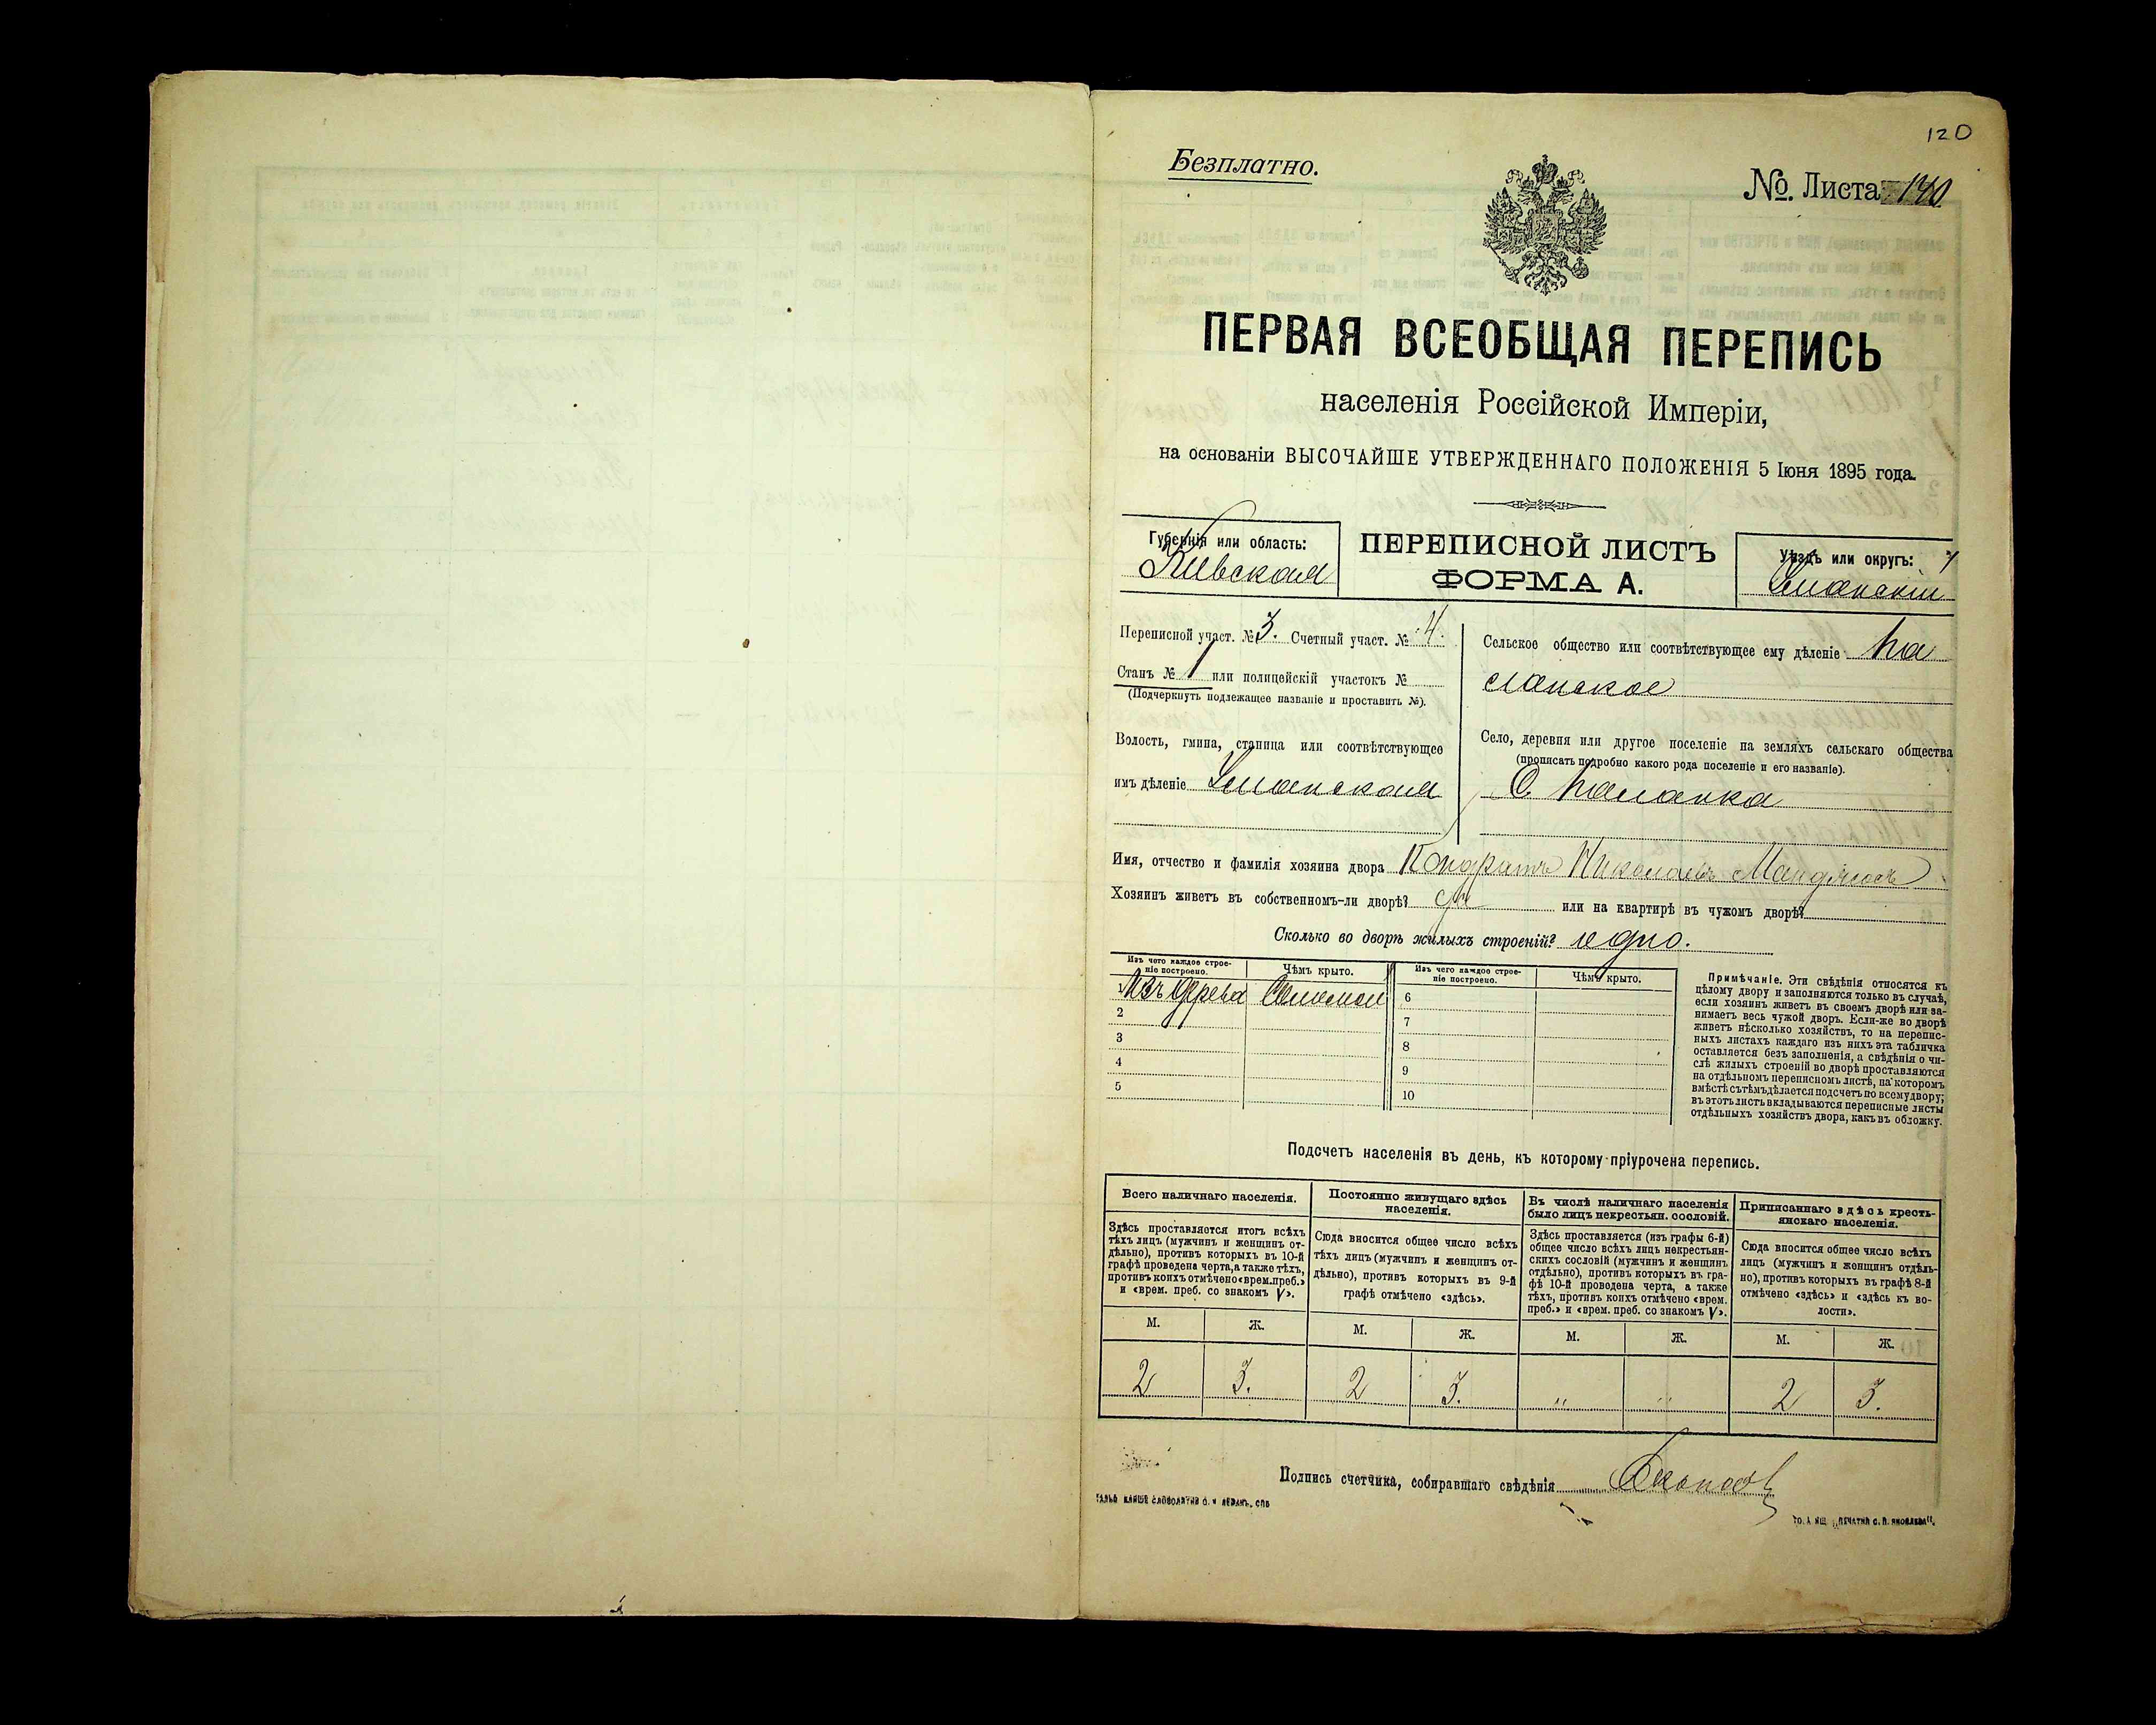 120
Безплатно.
№. Листа 140
ПЕРВАЯ ВСЕОБЩАЯ ПЕРЕПИСЬ
населенія Россійской Имперіи,
на основаніи ВЫСОЧАЙШЕ УТВЕРЖДЕННАГО ПОЛОЖЕНІЯ 5 Іюня 1895 года.
Губернія или область:
Кіевская
ПЕРЕПИСНОЙ ЛИСТЪ
ФОРМА А.
Уѣздъ или округъ:
Уманскій
Переписной участ. № 3. Счетный участ. № 4.
Станъ № 1 или полицейскій участокъ №
(Подчеркнуть подлежащее названіе и проставить №).
Волость, гмина, станица или соотвѣтствующее
имъ дѣленіе Уманская
Сельское общество или соотвѣтствующее ему дѣленіе Па
ланское
Село, деревня или другое поселеніе на земляхъ сельскаго общества
(прописать подробно какого рода поселеніе и его названіе).
С. Паланка
Имя, отчество и фамилія хозяина двора Кондратъ Николаевъ Мандзюкъ
Хозяинъ живетъ въ собственномъ-ли дворѣ? да или на квартирѣ въ чужомъ дворѣ?
Сколько во дворѣ жилыхъ строеній? одно.
Изъ чего каждое строе-
ніе построено.
Чѣмъ крыто.
Изъ чего каждое строе-
ніе построено.
Чѣмъ крыто.
Изъ дерева Соломой 6
2 7
3 8
4 9
5 10
Примѣчаніе. Эти свѣдѣнія относятся къ
цѣлому двору и заполняются только въ случаѣ,
если хозяинъ живетъ въ своемъ дворѣ или за-
нимаетъ весь чужой дворъ. Если-же во дворѣ
живетъ нѣсколько хозяйствъ, то на перепис-
ныхъ листахъ каждаго изъ нихъ эта табличка
оставляется безъ заполненія, а свѣдѣнія о чи-
слѣ жилыхъ строеній во дворѣ проставляются
на отдѣльномъ переписномъ листѣ, на которомъ
вмѣстѣ съ тѣмъ дѣлается подсчетъ по всему двору;
въ этотъ листъ вкладываются переписные листы
отдѣльныхъ хозяйствъ двора, какъ въ обложку.
Подсчетъ населенія въ день, къ которому пріурочена перепись.
Всего наличнаго населенія.
Здѣсь проставляется итогъ всѣхъ
тѣхъ лицъ (мужчинъ и женщинъ от-
дѣльно), противъ которыхъ въ 10-й
графѣ проведена черта, а также тѣхъ,
противъ коихъ отмѣчено «врем. преб.»
и «врем. преб. со знакомъ V».
Постоянно живущаго здѣсь
населенія.
Сюда вносится общее число всѣхъ
тѣхъ лицъ (мужчинъ и женщинъ от-
дѣльно), противъ которыхъ въ 9-й
графѣ отмѣчено «здѣсь».
Въ числѣ наличнаго населенія
было лицъ некрестьян. сословій.
Здѣсь проставляется (изъ графы 6-й)
общее число всѣхъ лицъ некрестьян-
скихъ сословій (мужчинъ и женщинъ
отдѣльно), противъ которыхъ въ гра-
фѣ 10-й проведена черта, а также
тѣхъ, противъ коихъ отмѣчено «врем.
преб.» и «врем. преб. со знакомъ V».
Приписаннаго здѣсь кресть-
янскаго населенія.
Сюда вносится общее число всѣхъ
лицъ (мужчинъ и женщинъ отдѣль-
но), противъ которыхъ въ графѣ 8-й
отмѣчено «здѣсь» и «здѣсь къ во-
лости».
М. Ж. М. Ж. М. Ж. М. Ж.
2 3. 2 3. " " 2 3.
Подпись счетчика, собиравшаго свѣдѣнія